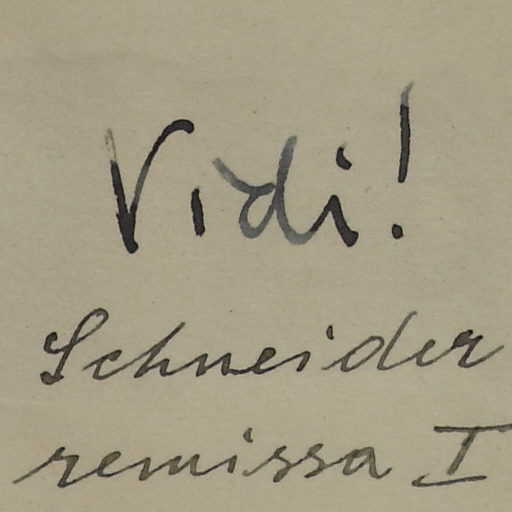 Vidi!
Schneider
remissa I